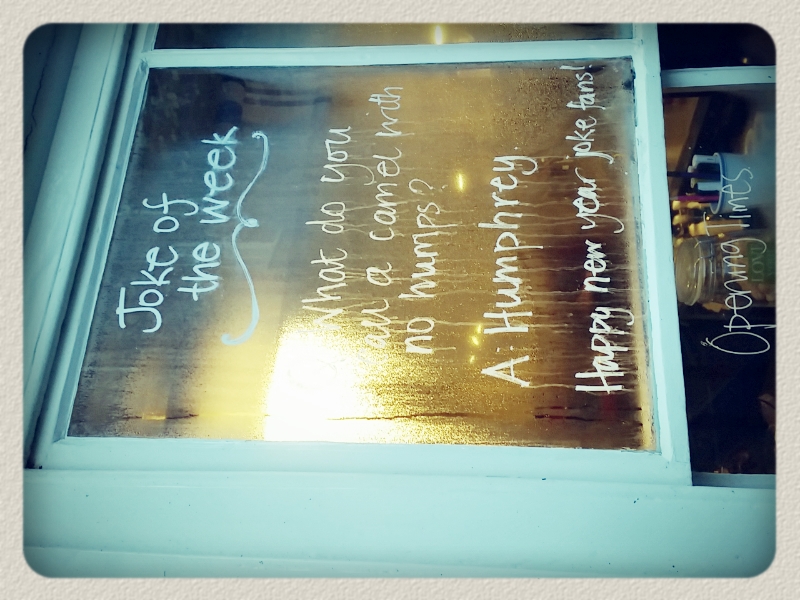 Joke of
the week
Q: What do you
call a camel with
no humps?
A: Humphrey.
Happy new year joke fans!
Opening times